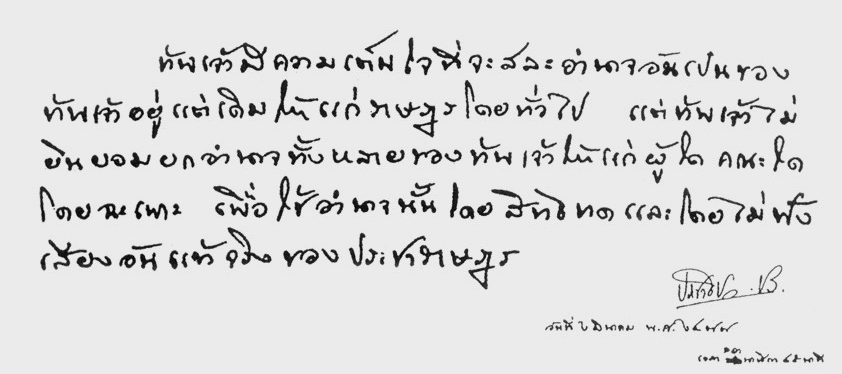 ข้าพเจ้ามีความเต็มใจที่จะสละอำนาจอันเป็นของ
ข้าพเจ้าอยู่แต่เดิมให้แก่ราษฎรโดยทั่วไป แต่ข้าพเจ้าไม่
ยินยอมยกอำนาจทั้งหลายของข้าพเจ้าให้แก่ผู้ใด คณะใด
โดยฉะเพาะ เพื่อใช้อำนาจนั้นโดยสิทธิขาดและโดยไม่ฟัง
เสียงอันแท้จริงของประชาราษฎร
ประชาธิปก .ปร.
วันที่ ๒ มีนาคม พ.ศ. ๒๔๗๗
เวลา นาฬิกา ๔๕ นาที